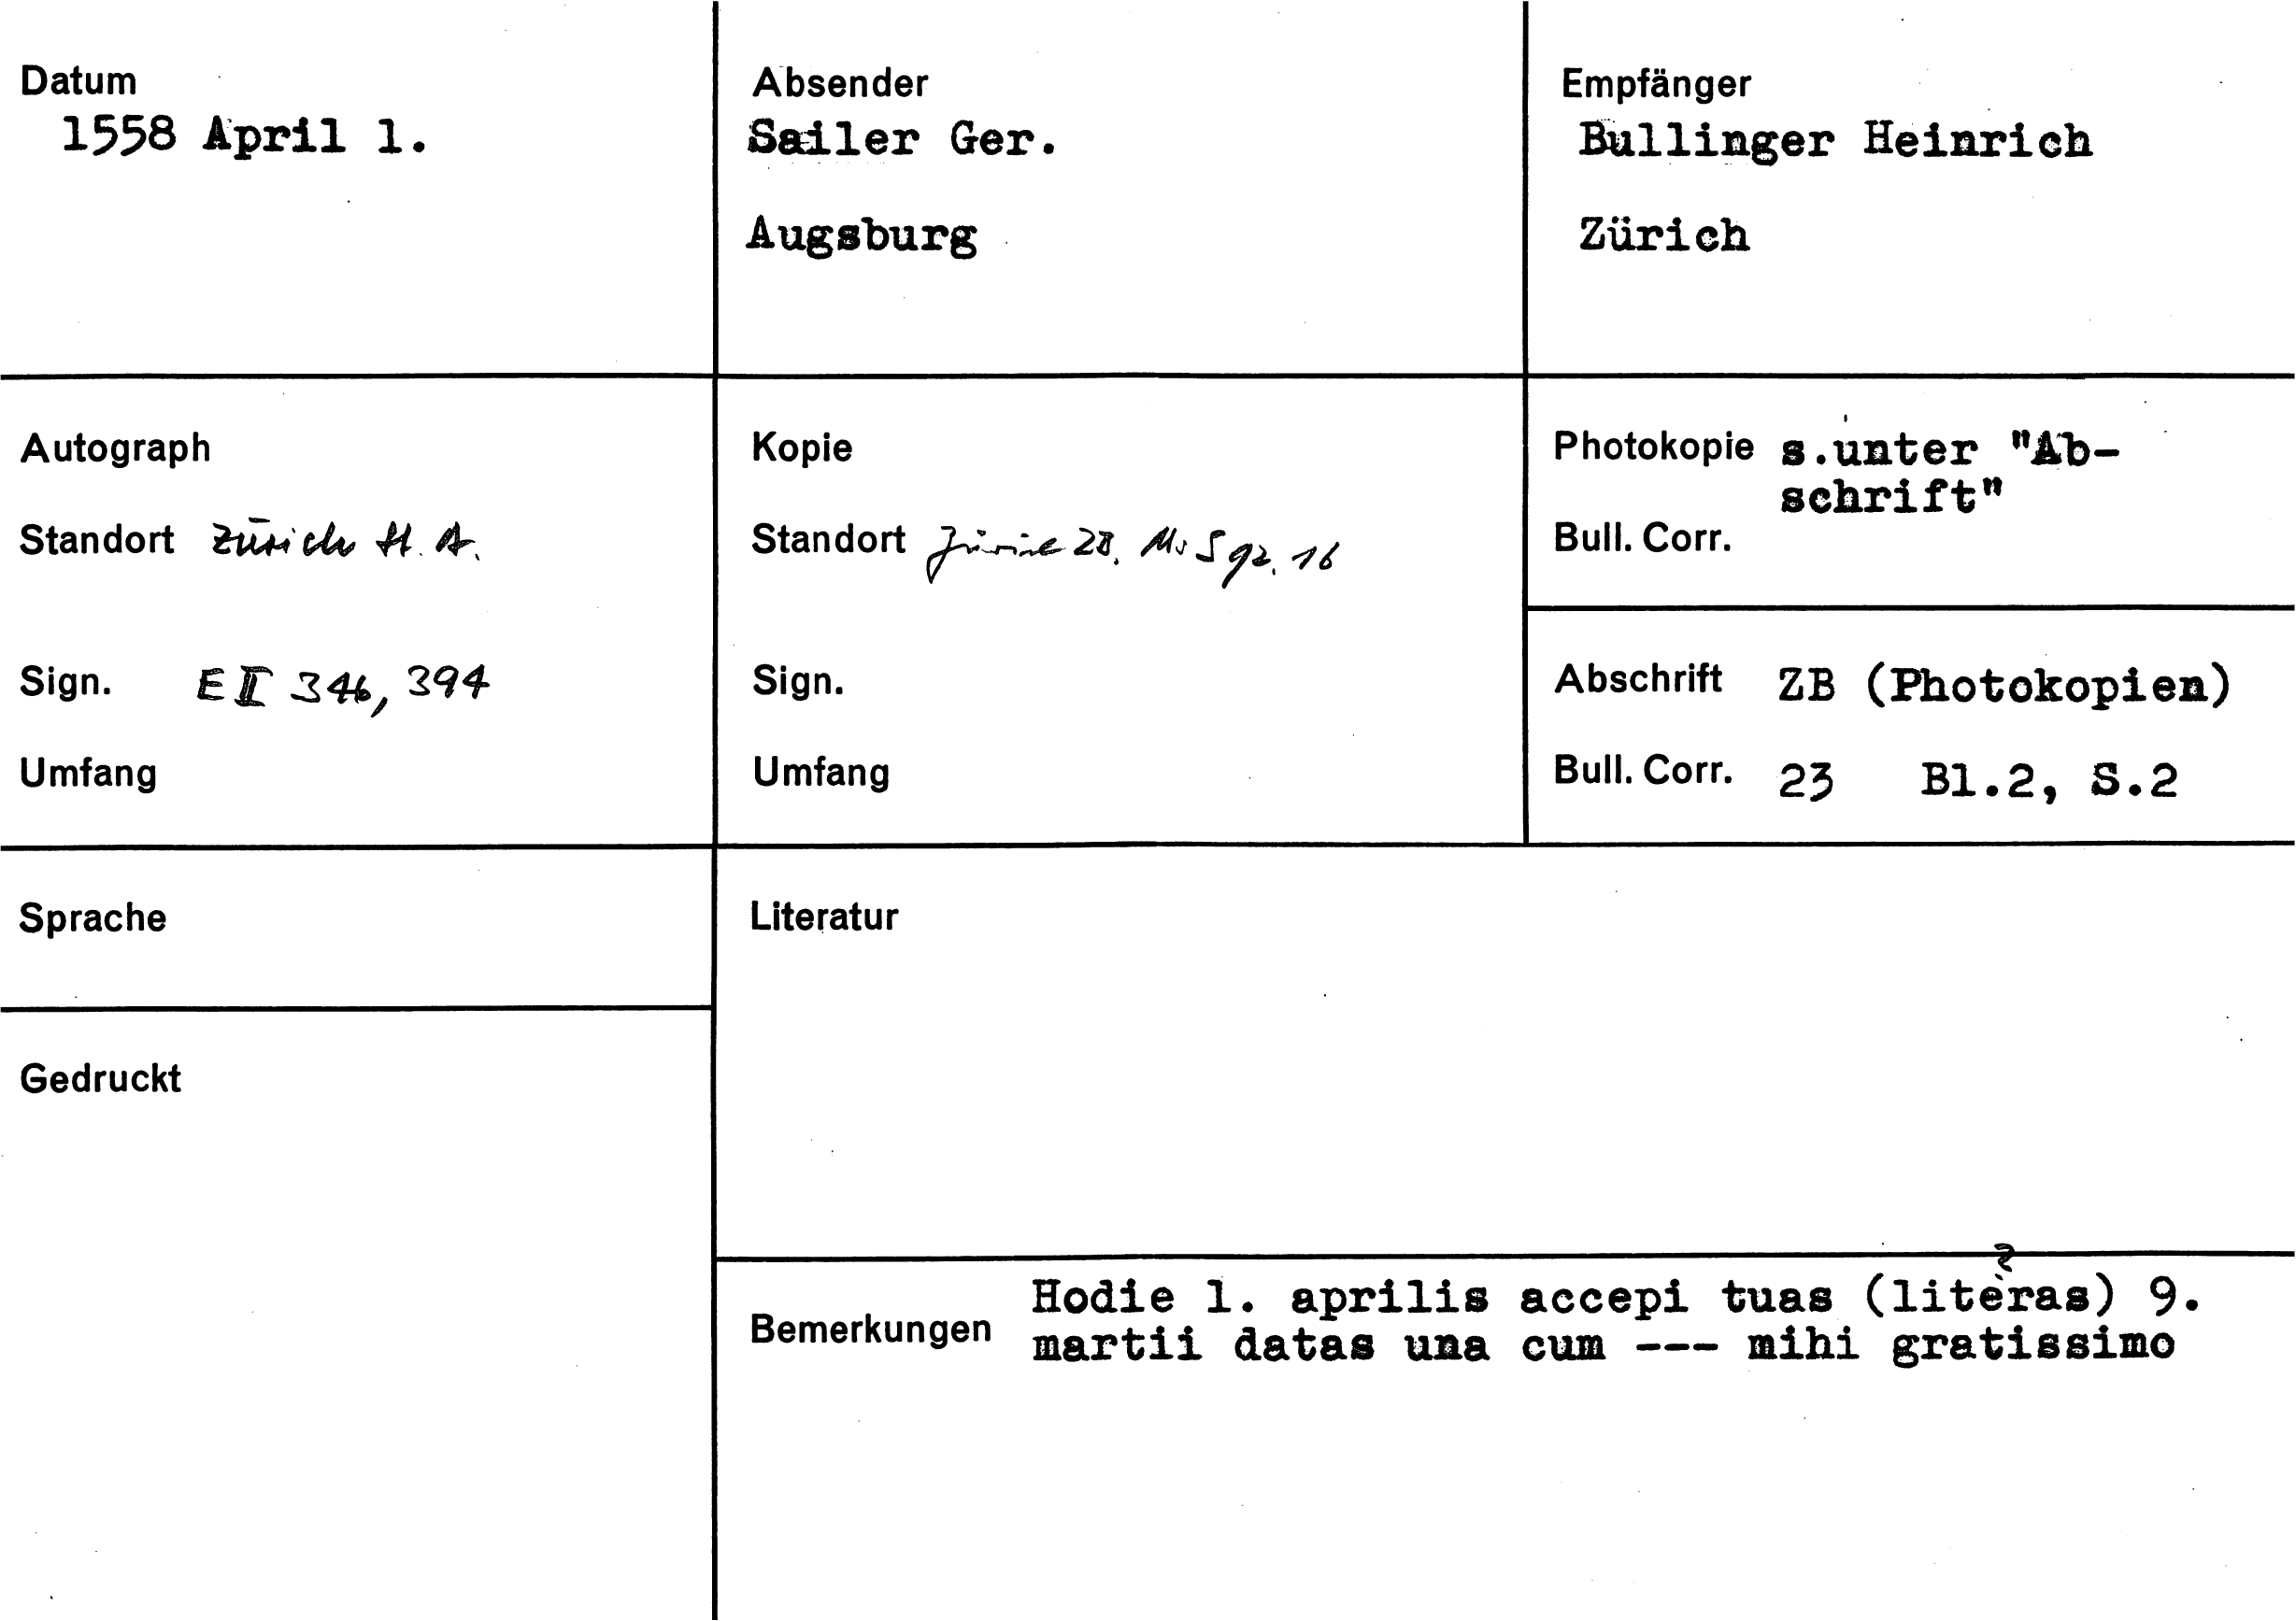 Datum
1558 April 1.
Absender
Sailer Ger.
Augsburg
Empfänger
Bullinger Heinrich
Zürich
Autograph
Standort Zürich St. A.
Sign. E II 346, 394
Umfang
Kopie
Standort Zürich ZB. Ms S 92. 16
Sign.
Umfang
Photokopie s.unter "Ab-
schrift"
Bull. Corr.
Abschrift ZB (Photokopien)
Bull. Corr. 23 Bl.2, S.2
Sprache
Gedruckt
Literatur
Bemerkungen
Hodie 1. aprilis accepi tuas (literas) 9.
martii datas una cum --- mihi gratissimo